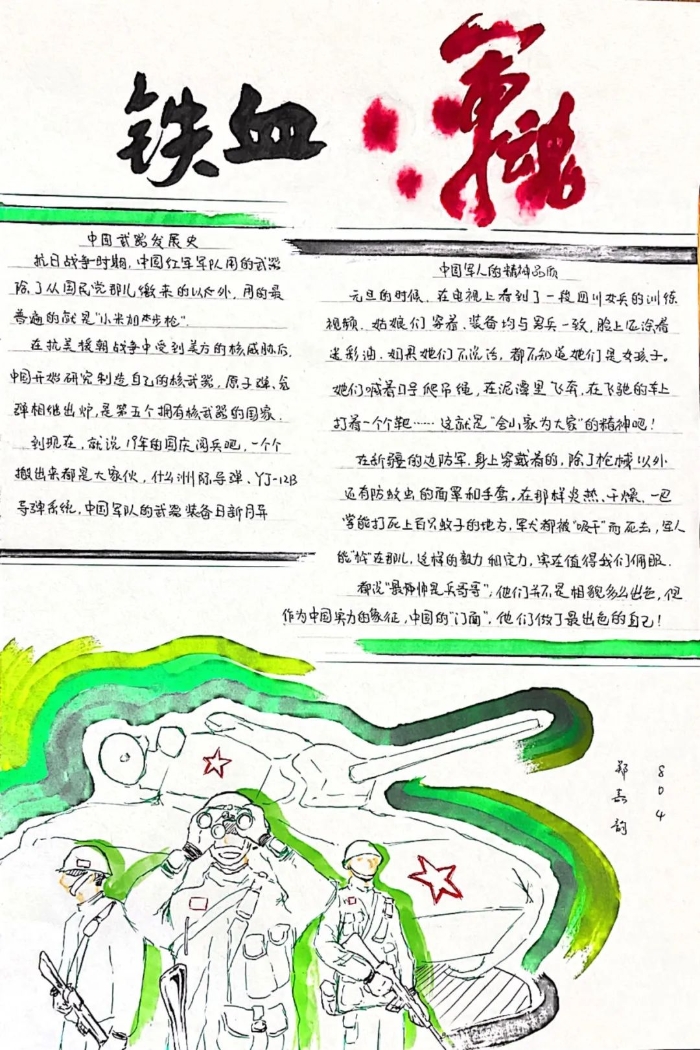 铁血
军魂
中国武器发展史
抗日战争时期，中国红军军队用的武器
除了从国民党那儿缴来的以外，用的最
普遍的就是“小米加步枪”.
在抗美援朝战争中受到美方的核威胁后.
中国开始研究制造自己的核武器，原子弹、氢
弹相继出炉，是第五个拥有核武器的国家.
到现在，就说19年的国庆阅兵吧，一个个
搬出来都是大家伙，什么洲际导弹、YJ-12B
导弹系统，中国军队的武器装备日新月异
中国军人的精神品质
元旦的时候，在电视上看到了一段四川女兵的训练
视频，姑娘们穿着、装备均与男兵一致，脸上还涂着
迷彩油，如果她们不说话，都不知道她们是女孩子。
她们喊着口号爬吊绳，在泥潭里飞奔，在飞驰的车上
打着一个个靶……这就是“舍小家为大家”的精神吧！
在新疆的边防军，身上穿戴着的，除了枪械以外
还有防蚊虫的面罩和手套，在那样炎热、干燥、一巴
掌能打死上百只蚊子的地方，军犬都被“吸干”而死去，军人
能“站”在那儿，这样的毅力和定力，实在值得我们佩服.
都说“最帅帅是兵哥哥”，他们并不是相貌多么出色，但
作为中国实力的象征，中国的“门面”，他们做了最出色的自己！
804
郑嘉韵